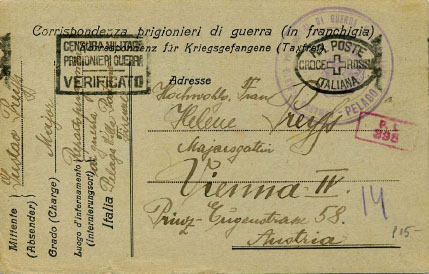 Corrispondenza prigionieri di guerra (in franchigia)
Correspondenz für Kriegsgefangene (Taxfrei)
CENSURA MILITARE
PRIGIONIERI GUERRA
VERIFICATO
DI GUERRA
PELAGO
R.R. POSTE
CROCE ROSSA
ITALIANA
Adresse
Hochwohlg. Frau
Helene Preyß
Majorsgattin
Vienna IV.
Prinz-Eugenstrasse 58.
Austria
14
P.I.
395
115-
Mittente
(Absender)
Gustav Preyß
Grado (Charge) Major
Luogo d'internamento
(Internierungsort)
Italia